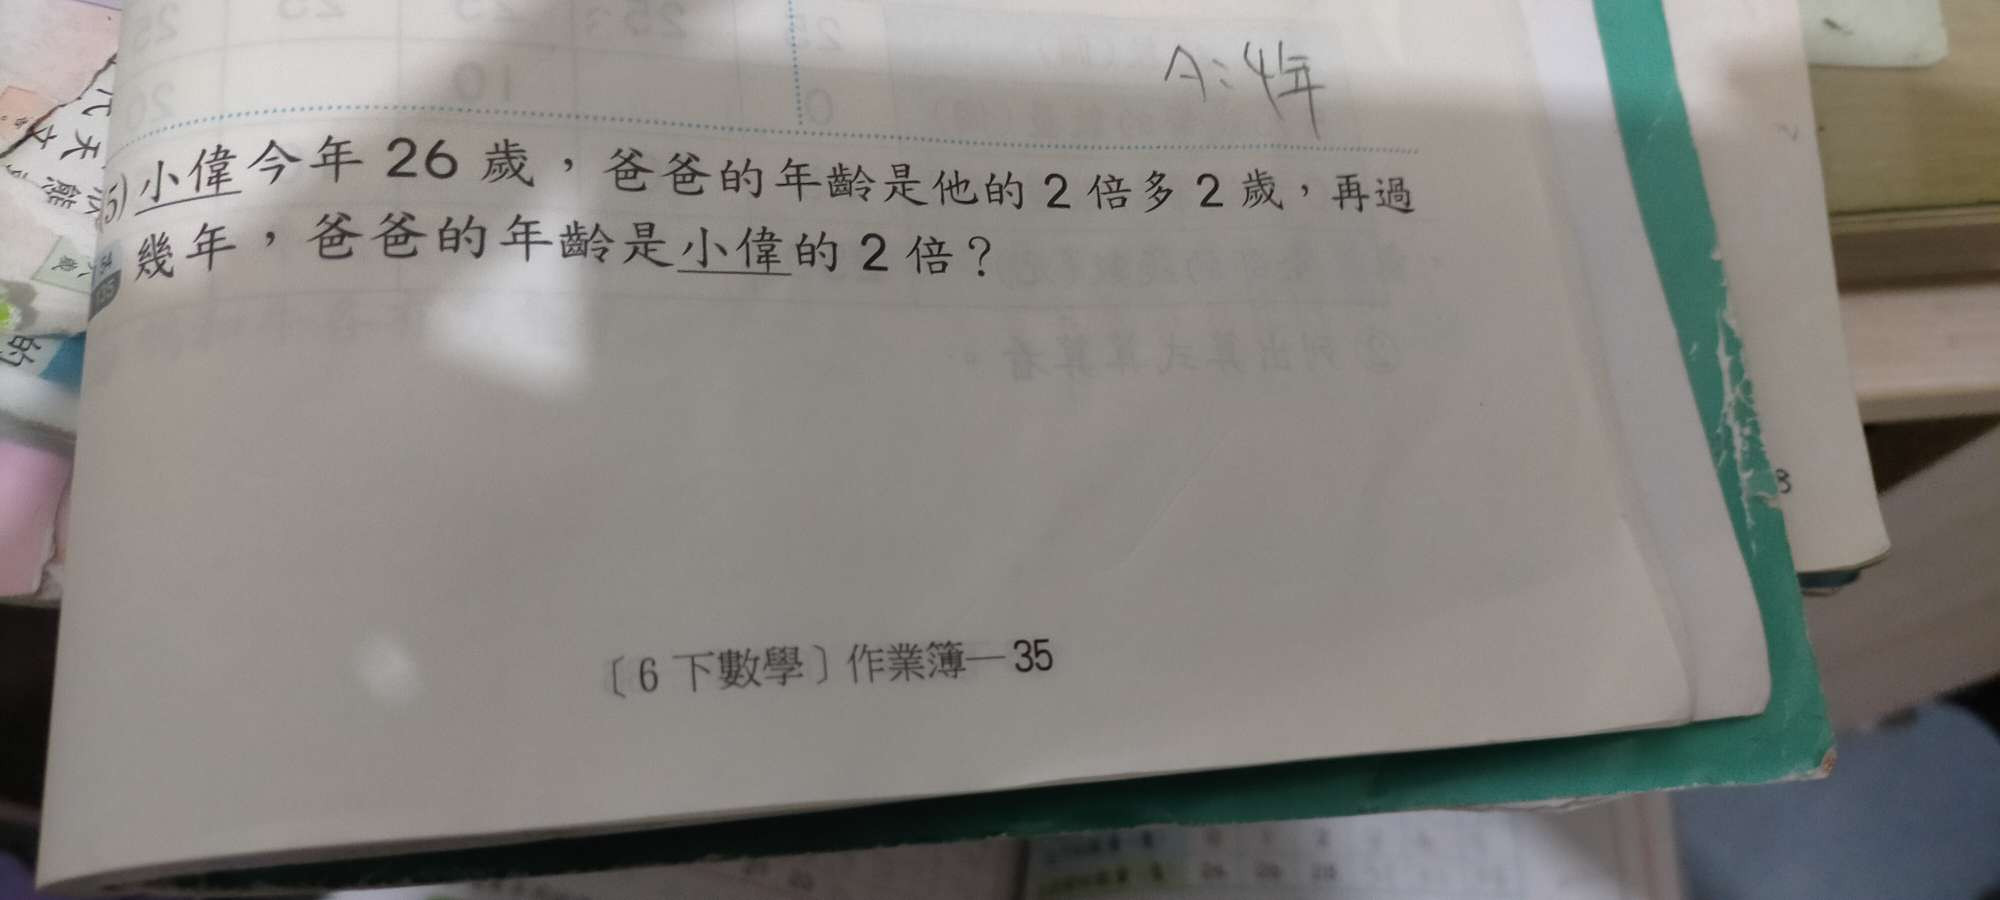 A:4年
5)小偉今年 26 歲，爸爸的年齡是他的 2 倍多 2 歲，再過
幾年，爸爸的年齡是小偉的 2 倍？
〔6 下數學〕作業簿—35